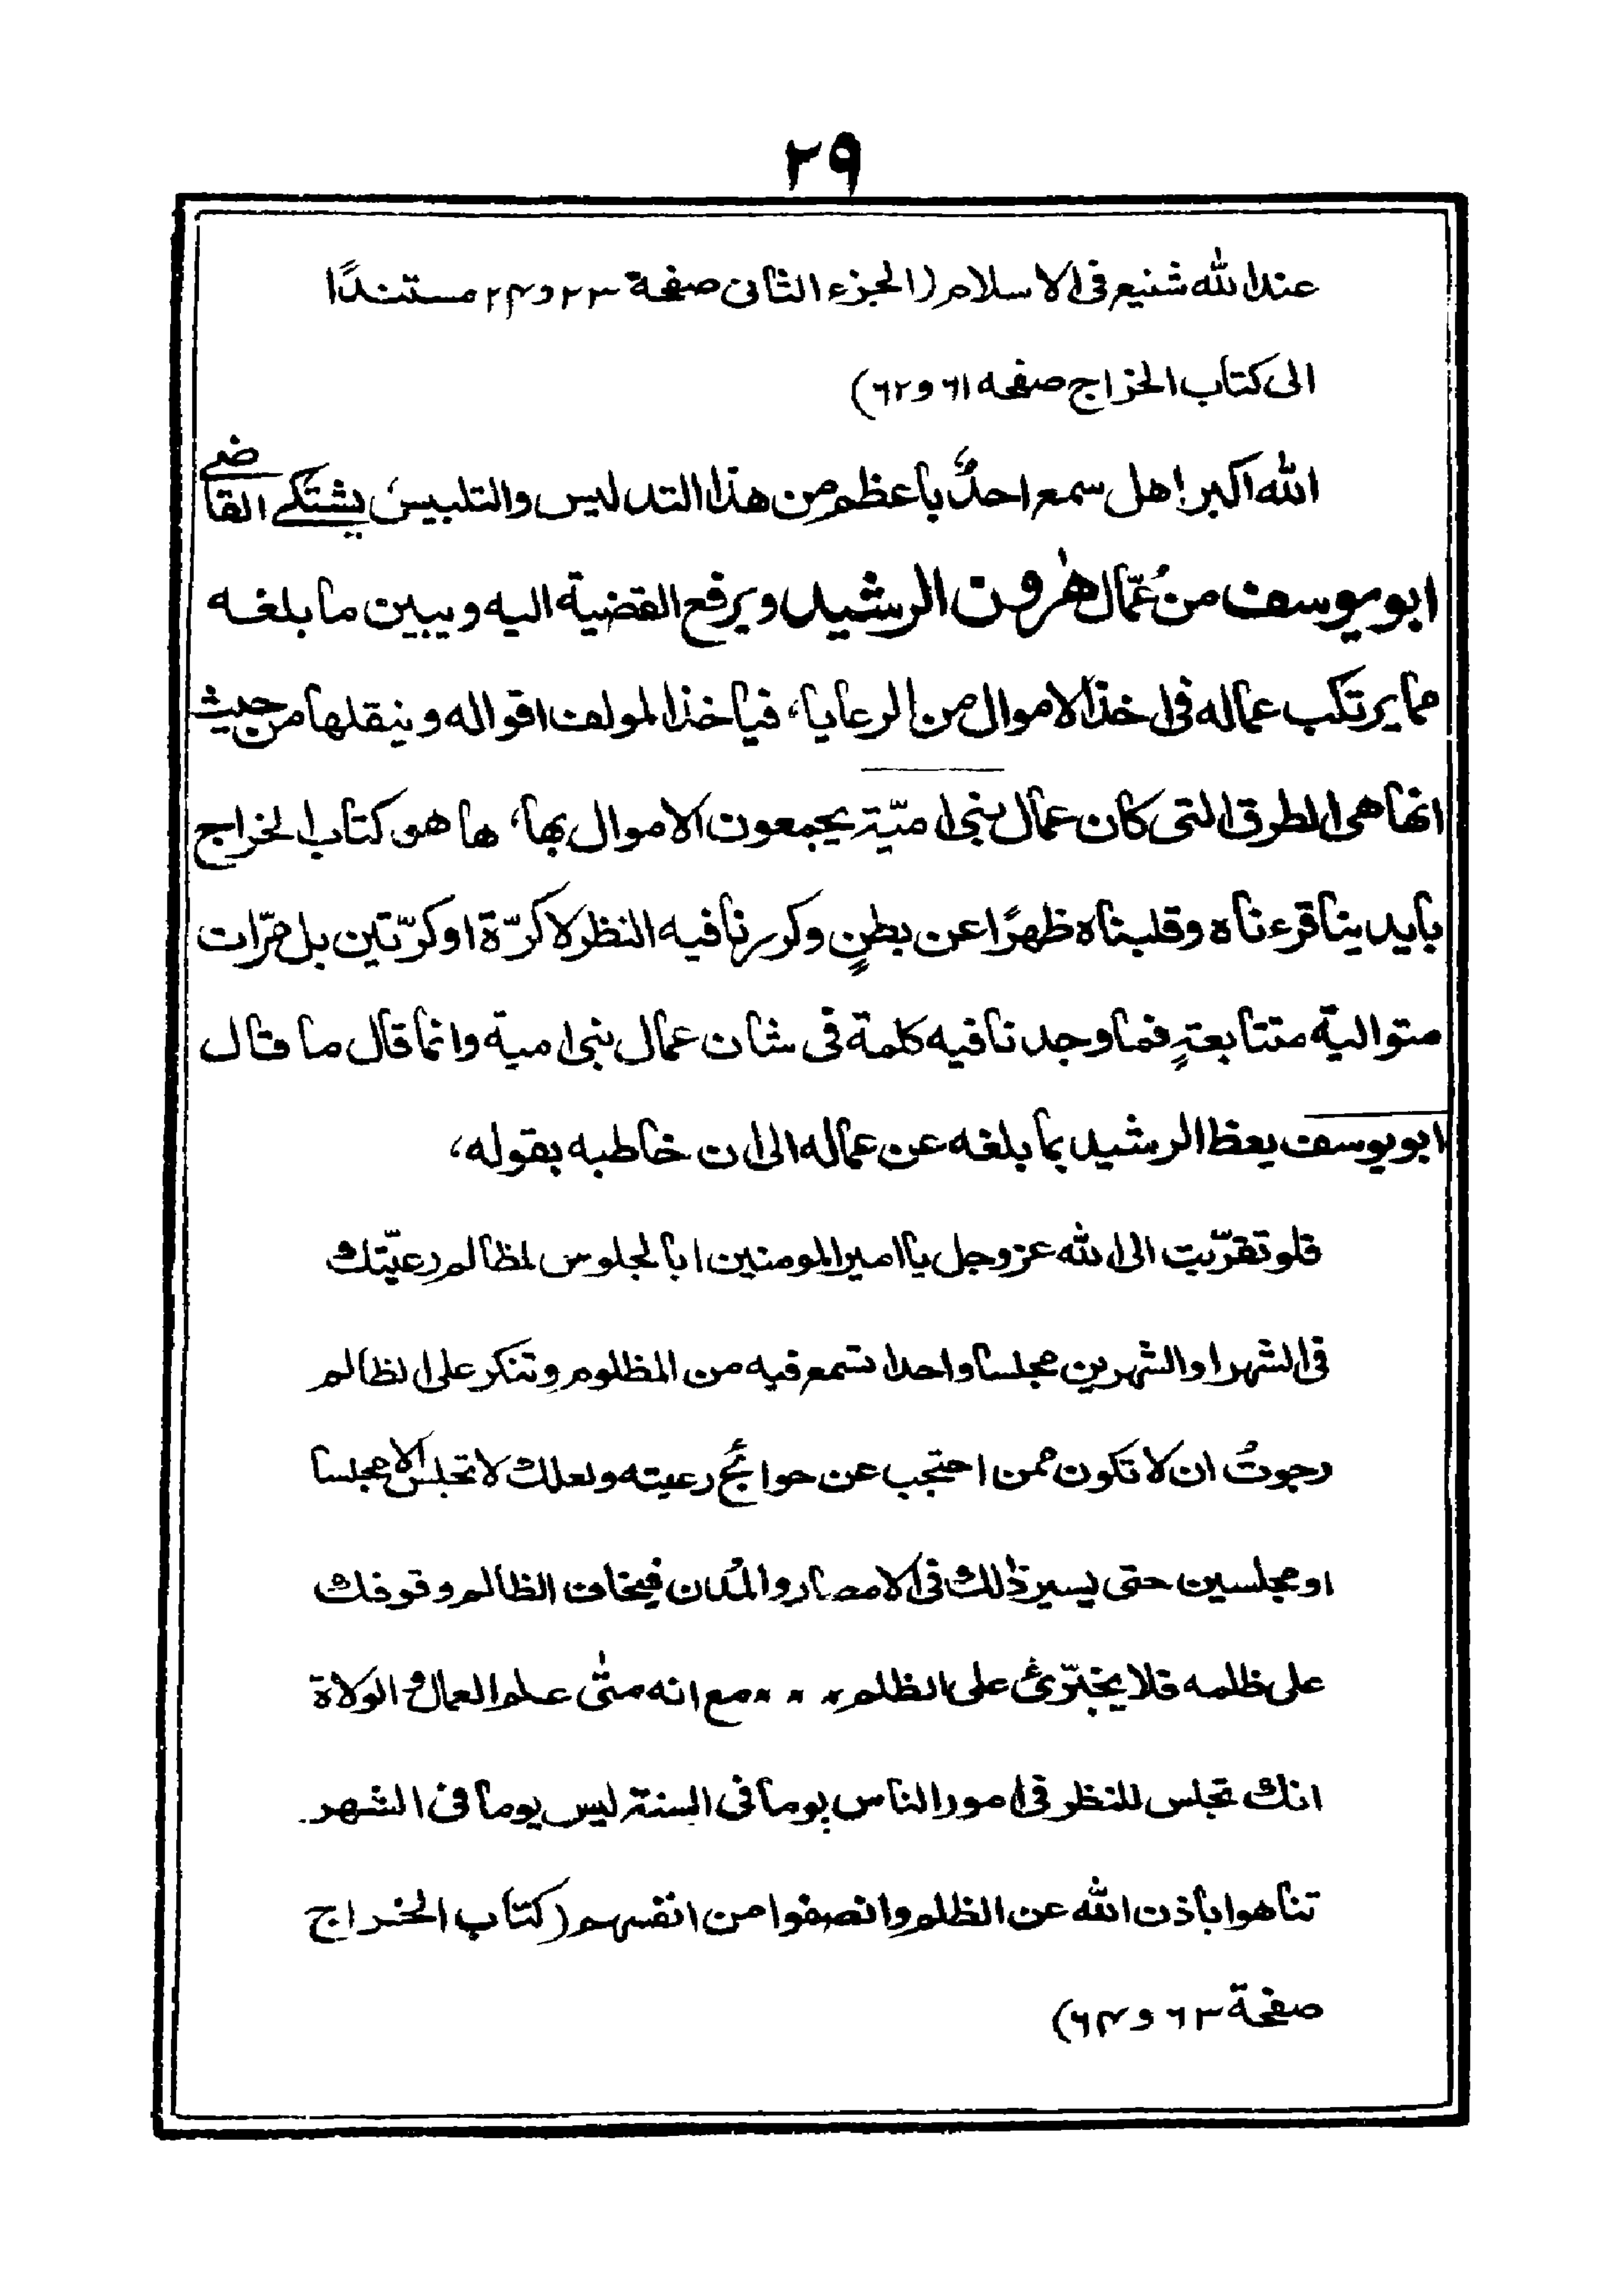 ٢٩
عند الله شنيع فى الاسلام (الجزء الثانى صفحة ٢٣ و ٢٤ مستندًا
الى كتاب الخراج صفحه ٦١ و ٦٢)
الله اكبر! هل سمع احدٌ باعظم من هذا التدليس والتلبيس، يشتكے القاضے
ابو يوسف من عُمّال هٰرون الرشيد ويرفع القضية اليه ويبين ما بلغه
مما يرتكب عماله فى اخذ الاموال من الرعايا، فياخذ المولف اقواله وينقلها من حيث
انها هى الطرق التى كان عمال بنى اميّة يجمعون الاموال بها، ها هو كتاب الخراج
بايدينا قرءناه وقلبناه ظهرًا عن بطنٍ وكررنا فيه النظر لا كرّة او كرّتين بل مرّات
متوالية متتابعةٍ فما وجدنا فيه كلمة فى شان عمال بنى امية وانما قال ما قال
ابو يوسف يعظ الرشيد بما بلغه عن عماله الى ان خاطبه بقوله،
فلو تقرّبت الى الله عز وجل يا امير المومنين ابالجلوس لمظالم رعيّتك
فى الشهر او الشهرين مجلسا واحدا تسمع فيه من المظلوم وتنكر على الظالم
رجوتُ ان لا تكون ممن احتجب عن حوائج رعيته ولعلك لا تجلس الا مجلسا
او مجلسين حتى يسير ذٰلك فى الامصار والمُدن فيخاف الظالم وقوفك
على ظلمه فلا يجترّئ على الظلم ٠ ٠ ٠ ٠ مع انه متٰى علم العمال و الولاة
انك تجلس للنظر فى امور الناس يوما فى السنة ليس يوما فى الشهر
تناهوا باذن الله عن الظلم وانصفوا من انفسهم (كتاب الخراج
صفحة ٦٣ و ٦٤)